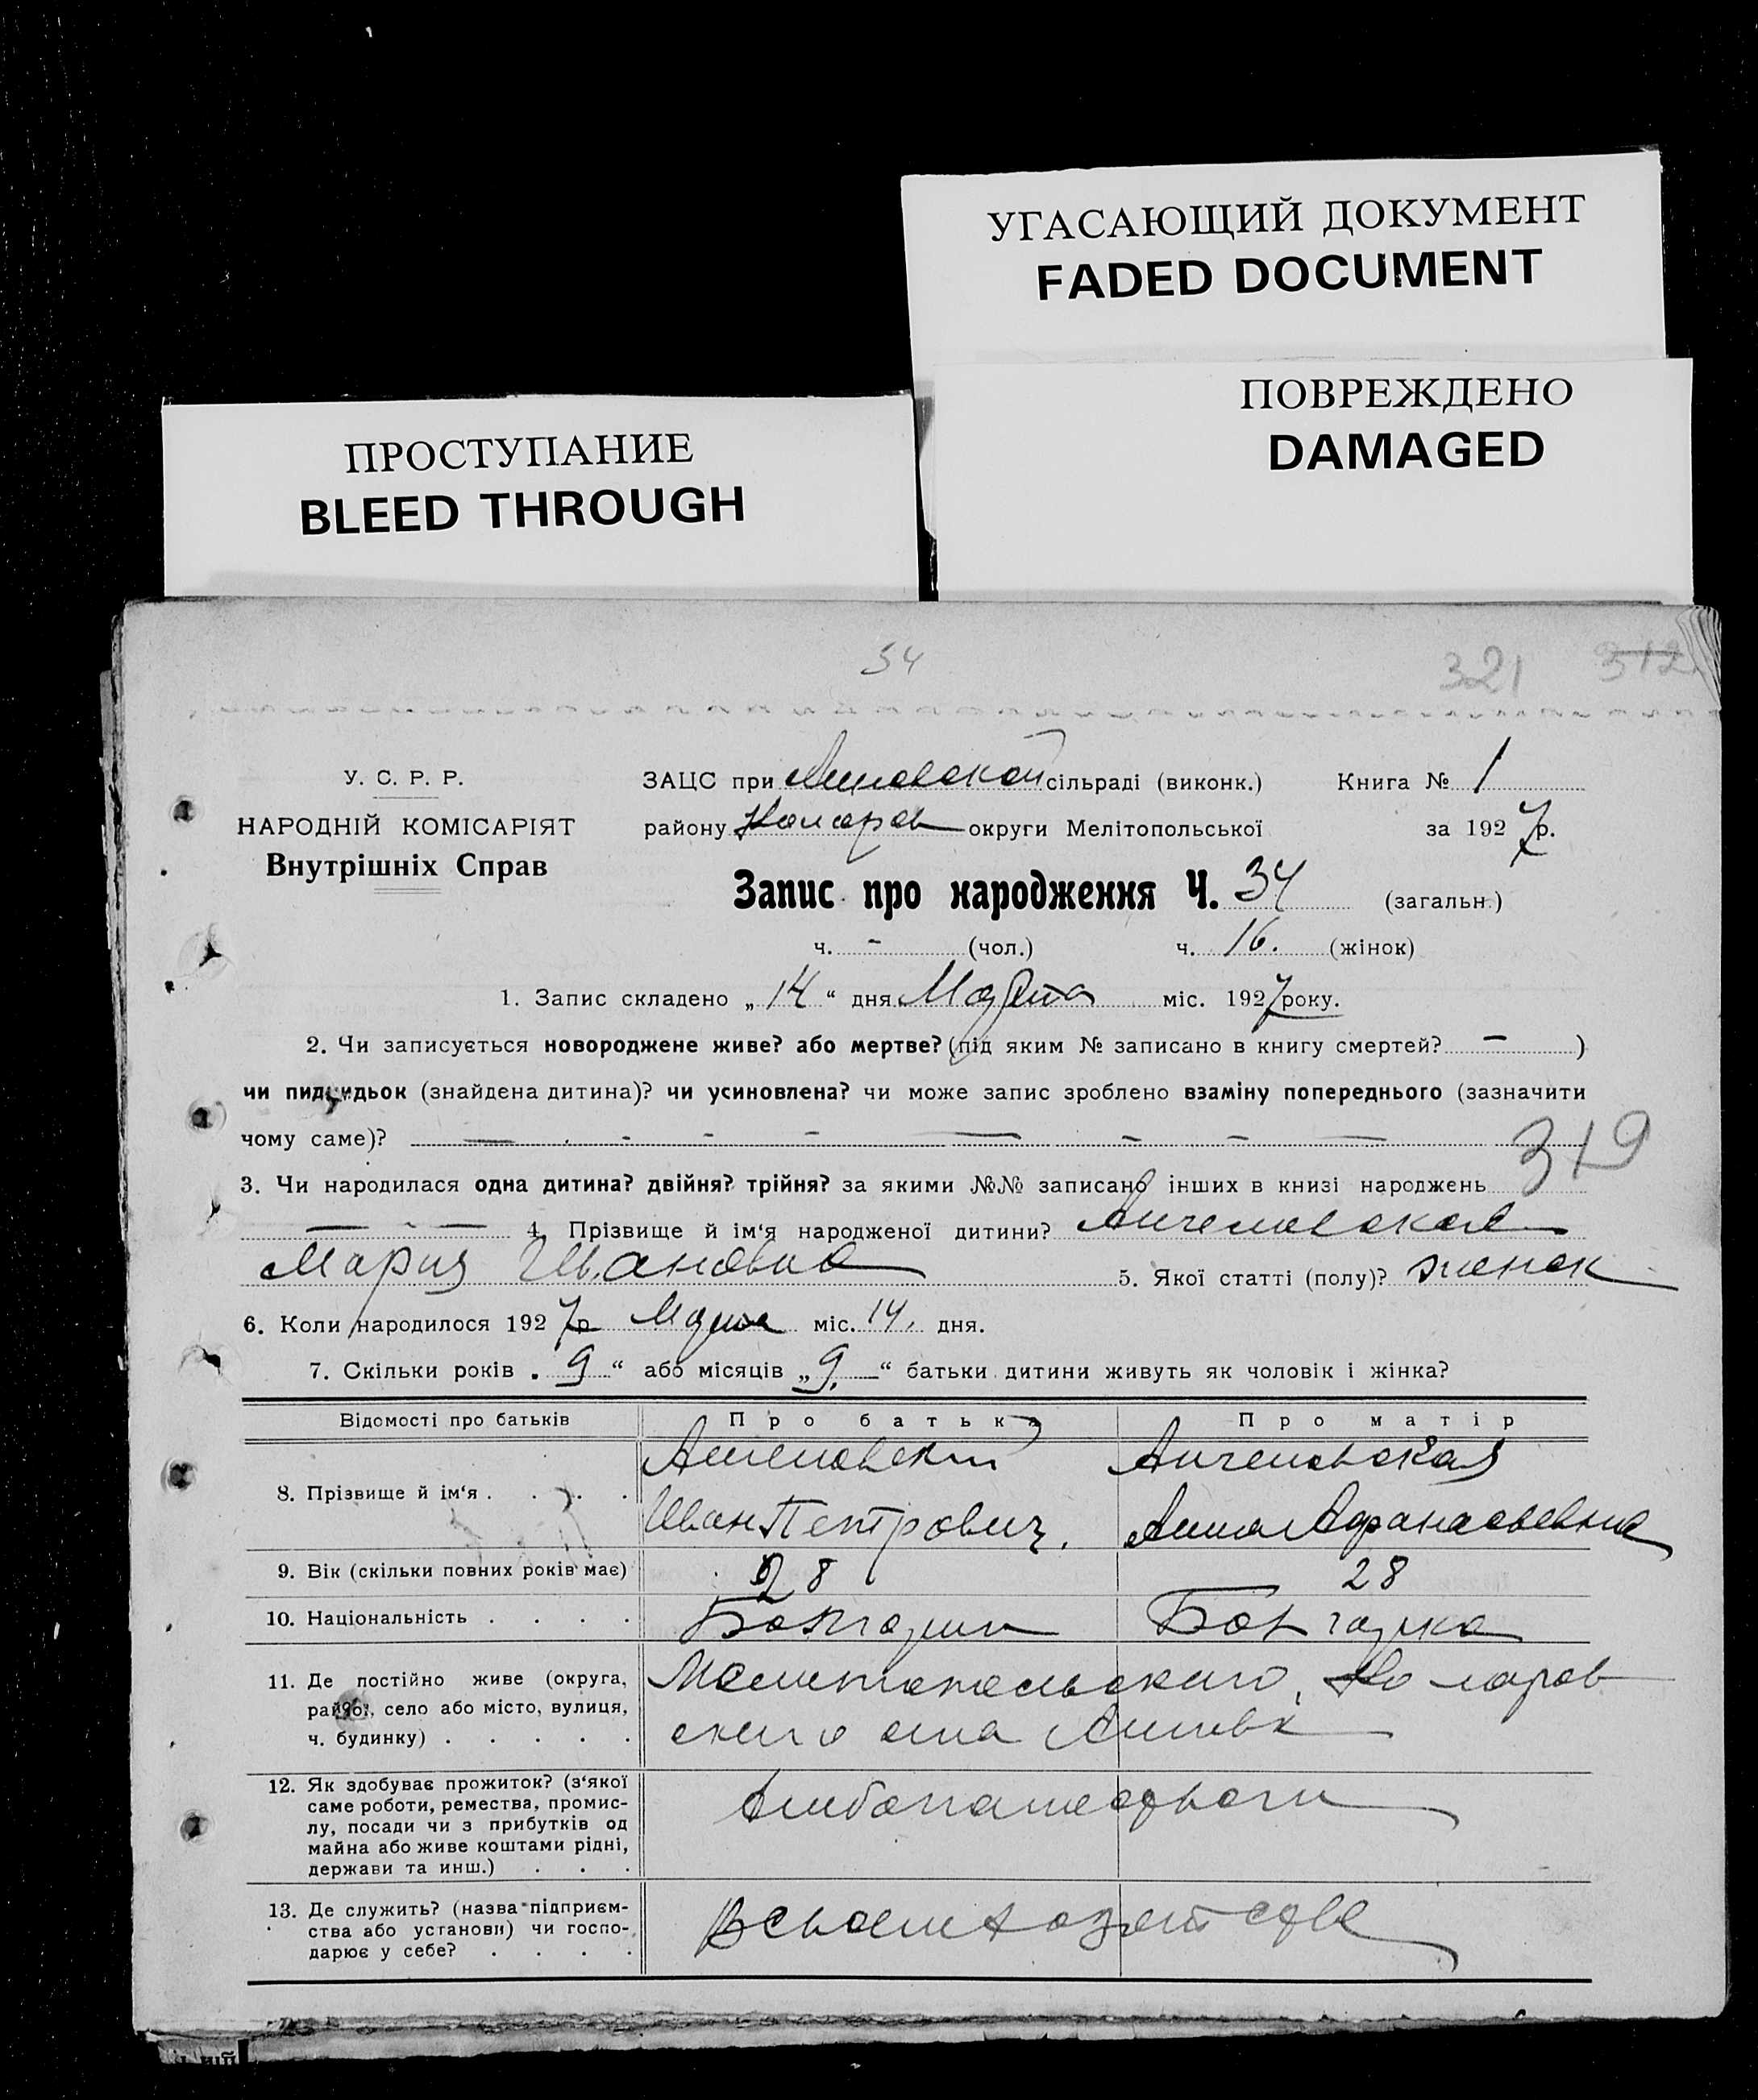 УГАСАЮЩИЙ ДОКУМЕНТ
FADED DOCUMENT
ПОВРЕЖДЕНО
DAMAGED
ПРОСТУПАНИЕ
BLEED THROUGH
34
321 312
У. С. Р. Р.
НАРОДНІЙ КОМІСАРІЯТ
Внутрішніх Справ
ЗАЦС при сільраді (виконк.) Книга № 1
району Коларов округи Мелітопольської за 1927р.
Запис про народження Ч. 34 (загальн.)
ч. - (чол.) ч. 16. (жінок)
1. Запис складено „14“ дня Марта міс. 1927 року.
2. Чи записується новороджене живе? або мертве? (під яким № записано в книгу смертей? — )
чи підкидьок (знайдена дитина)? чи усиновлена? чи може запис зроблено взаміну попереднього (зазначити
чому саме)? — - - - — - - —
319
3. Чи народилася одна дитина? двійня? трійня? за якими №№ записано інших в книзі народжень
— - — 4. Прізвище й ім‘я народженої дитини?
Мария Ивановна 5. Якої статті (полу)? женск
6. Коли народилося 1927р Марта міс. 14. дня.
7. Скільки років „9“ або місяців „9.“ батьки дитини живуть як чоловік і жінка?
Відомості про батьків Про батька Про матір
8. Прізвище й ім‘я . . . .
Иван Петрович. Анна Афанасьевна
9. Вік (скільки повних років має) 28 28
10. Національність . . . . Болгарин Болгарка
11. Де постійно живе (округа, район, село або місто, вулиця, ч. будинку) . . . . .
Мелитопольского, Коларов
ского
12. Як здобуває прожиток? (з‘якої
саме роботи, ремества, промис-
лу, посади чи з прибутків од
майна або живе коштами рідні,
держави та инш.) . . .
Хлебопашеством
13. Де служить? (назва підприєм-
ства або установи) чи госпо-
дарює у себе? . . . .
В своем хозяйстве